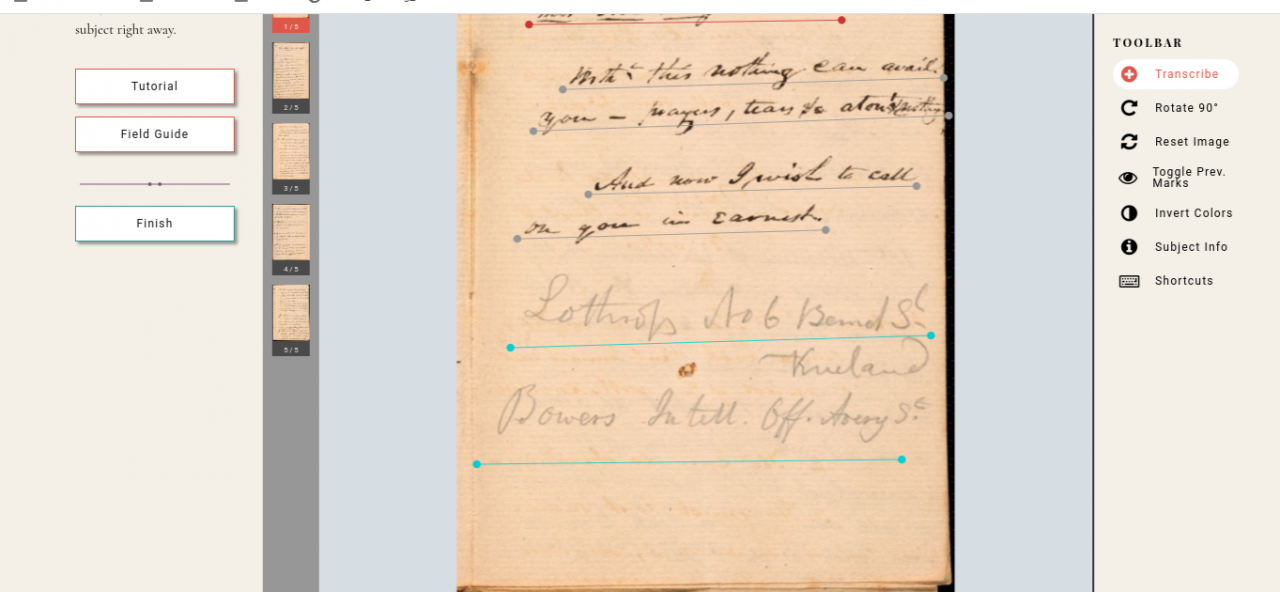 subject right away.
Tutorial
Field Guide
Finish
1/5
2/5
3/5
4/5
5/5
With this nothing can avail
you – prayers, tears &
And now I wish to call
on you in earnest.
Lothrop No 6 Bend St.
Kneland
Bowers Intell. Off. Avery St.
TOOLBAR
Transcribe
Rotate 90°
Reset Image
Toggle Prev.
Marks
Invert Colors
Subject Info
Shortcuts